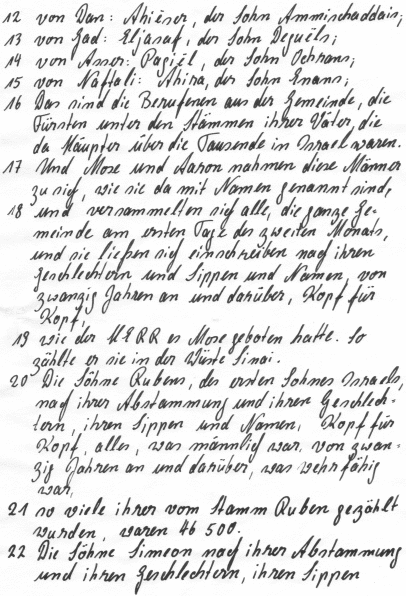 12 von Dan: Ahiëser, der Sohn Ammischaddais;
13 von Gad: Eljasaf, der Sohn Deguëls;
14 von Asser: Pagiël, der Sohn Ochrans;
15 von Naftali: Ahira, der Sohn Enans;
16 Das sind die Berufenen aus der Gemeinde, die
Fürsten unter den Stämmen ihrer Väter, die
da Häupter über die Tausende in Israel waren.
17 Und Mose und Aaron nahmen diese Männer
zu sich, wie sie da mit Namen genannt sind,
18 und versammelten sich alle, die ganze Ge-
meinde am ersten Tage des zweiten Monats,
und sie ließen sich einschreiben nach ihren
Geschlechtern und Sippen und Namen, von
zwanzig Jahren an und darüber, Kopf für
Kopf,
19 wie der HERR es Mose geboten hatte. So
zählte er sie in der Wüste Sinai.
20 Die Söhne Rubens, des ersten Sohnes Israels,
nach ihrer Abstammung und ihren Geschlech-
tern, ihren Sippen und Namen, Kopf für
Kopf, alles, was männlich war, von zwan-
zig Jahren an und darüber, was wehrfähig
war,
21 so viele ihrer vom Stamm Ruben gezählt
wurden, waren 46 500.
22 Die Söhne Simeon nach ihrer Abstammung
und ihren Geschlechtern, ihren Sippen